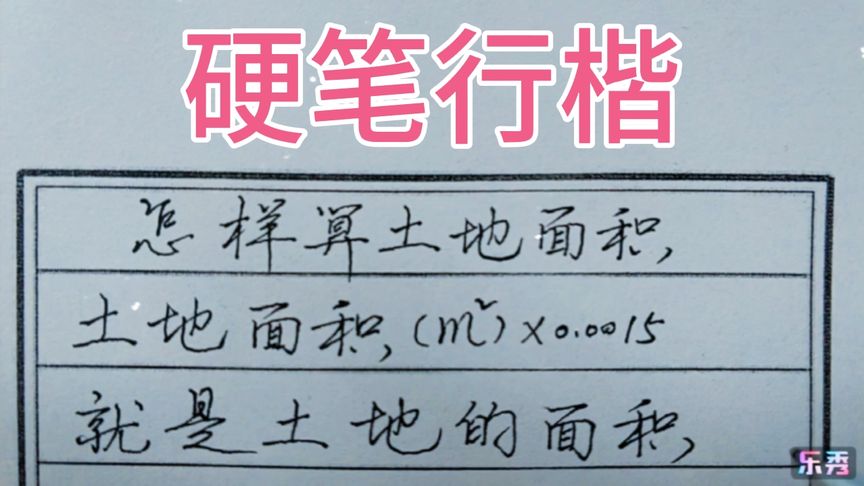 硬笔行楷
怎样算土地面积,
土地面积,(m²)×0.0015
就是土地的面积,
乐秀